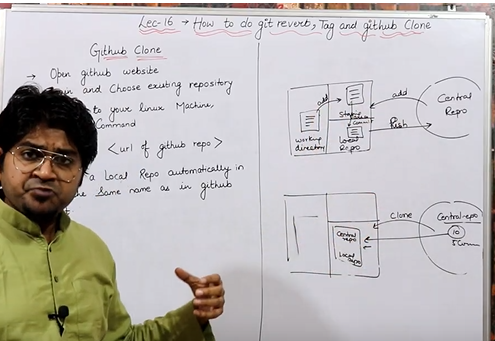 Lec-16 → How to do git revert, Tag and github Clone
Github Clone
→ Open github website
and Choose existing repository
to your linux Machine,
Command
<url of github repo>
a Local Repo automatically in
Same name as in github
add
Staging
Commit
working
directory
Local
Repo
add
Push
Central
Repo
Clone
Central
repo
Local
repo
Central-repo
10
5Comm